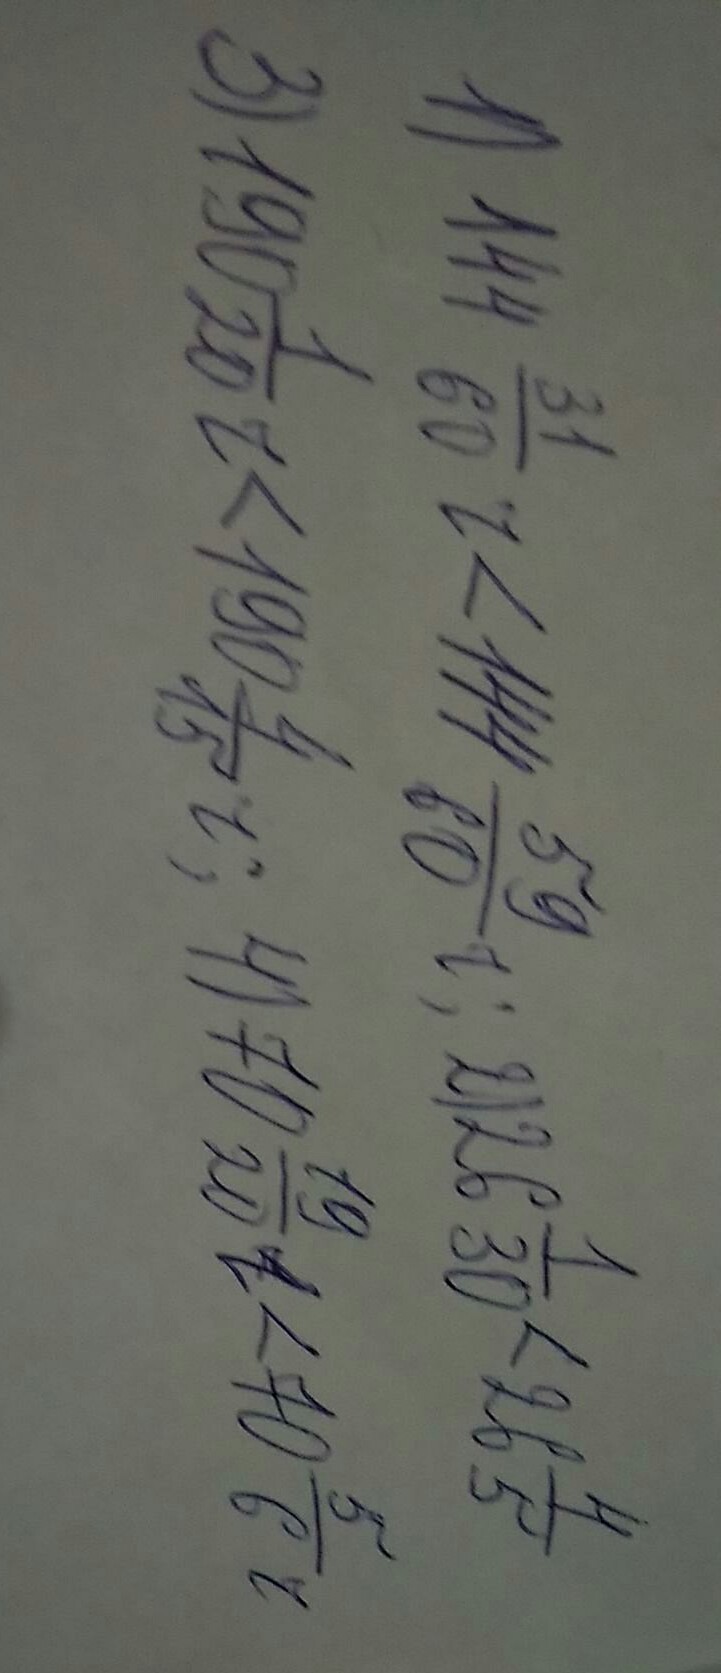 1) 144 31/60 г < 144 59/60 г; 2) 26 1/30 < 26 4/5
3) 190 1/20 г < 190 4/15 г; 4) 70 19/20 г < 70 5/6 г